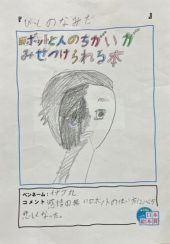 『びーしのなみだ 』
ロボットと人のちがいが
みせつけられる本
ペンネーム：イナゴ丸
コメント 感情の無いロボットの使い方にとても
悲しくなった。